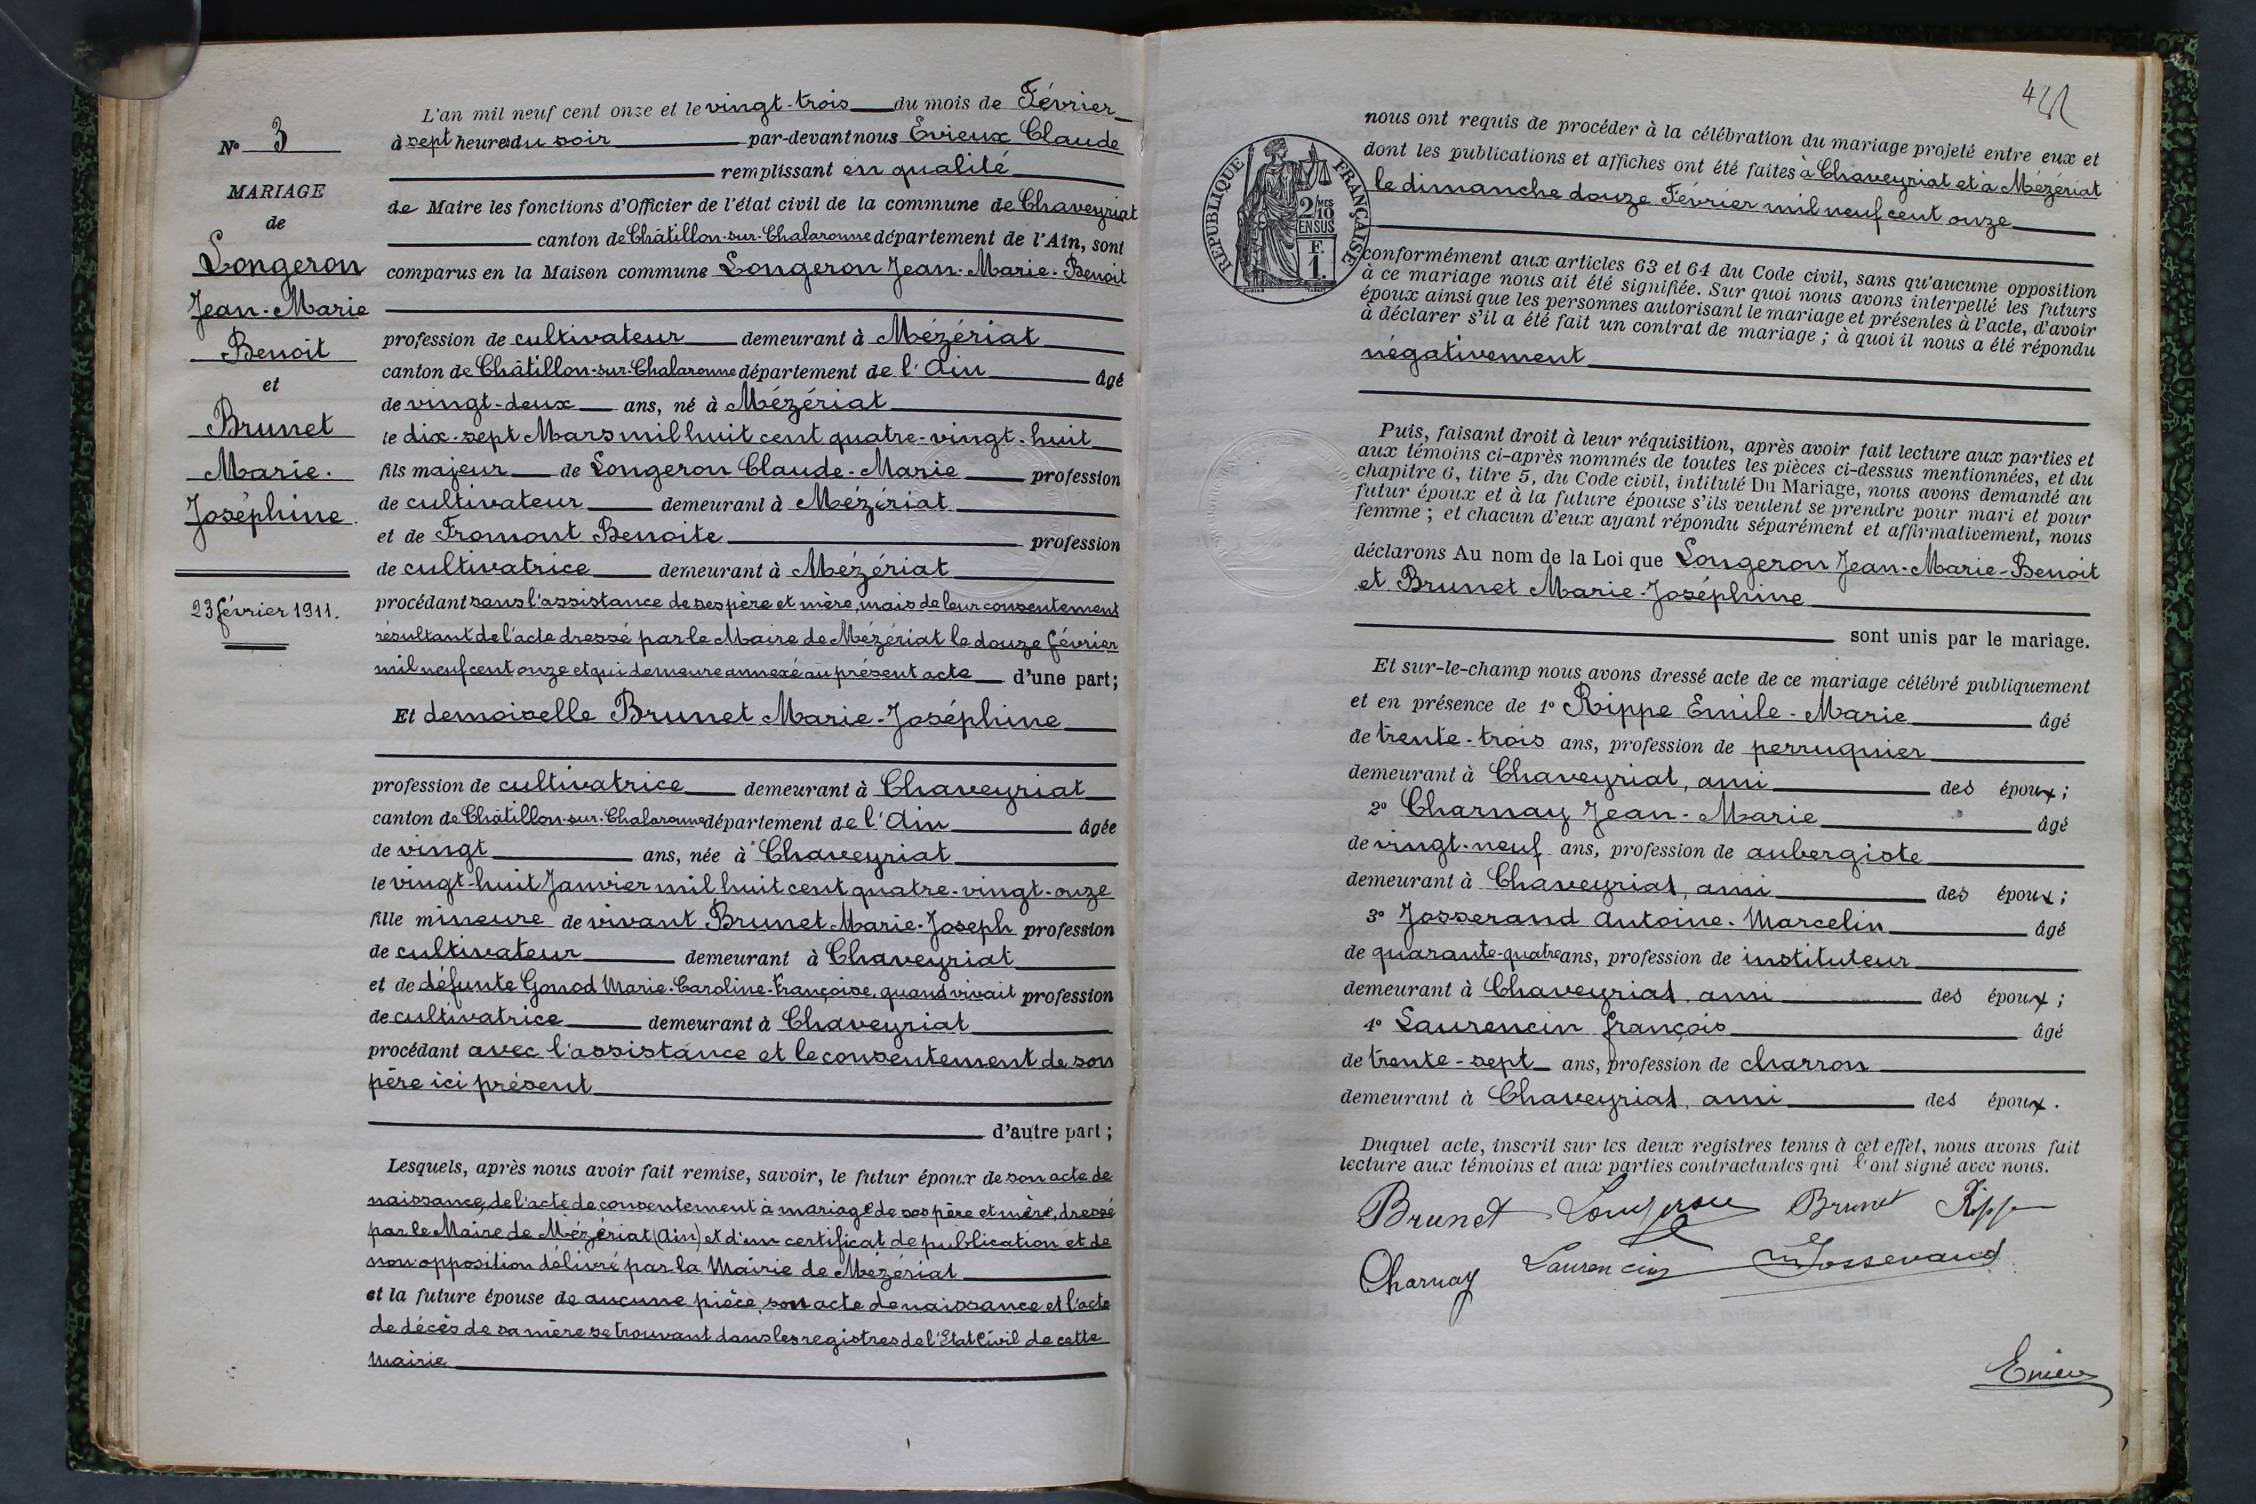 L'an mil neuf cent onze et le vingt-trois du mois de Février
à sept heures du soir par-devant nous Evieux Claude
remplissant en qualité
de Maire les fonctions d'Officier de l'état civil de la commune de Chaveyriat
canton de Châtillon-sur-Chalaronne département de l'Ain, sont
comparus en la Maison commune Longeron Jean-Marie-Benoit
profession de cultivateur demeurant à Mézériat
canton de Châtillon-sur-Chalaronne département de l'Ain âgé
de vingt-deux ans, né à Mézériat
le dix-sept Mars mil huit cent quatre-vingt-huit
fils majeur de Longeron Claude-Marie profession
de cultivateur demeurant à Mézériat
et de Fromont Benoite profession
de cultivatrice demeurant à Mézériat
procédant sans l'assistance de ses père et mère, mais de leur consentement
résultant de l'acte dressé par le Maire de Mézériat le douze février
mil neuf cent onze et qui demeure annexé au présent acte d'une part;
Et demoiselle Brunet Marie-Joséphine
profession de cultivatrice demeurant à Chaveyriat
canton de Châtillon-sur-Chalaronne département de l'Ain âgée
de vingt ans, née à Chaveyriat
le vingt-huit Janvier mil huit cent quatre-vingt-onze
fille mineure de vivant Brunet Marie-Joseph profession
de cultivateur demeurant à Chaveyriat
et de défunte Gonod Marie-Caroline-Françoise, quand vivait profession
de cultivatrice demeurant à Chaveyriat
procédant avec l'assistance et le consentement de son
père ici présent
d'autre part;
Lesquels, après nous avoir fait remise, savoir, le futur époux de son acte de
naissance, de l'acte de consentement à mariage de ses père et mère, dressé
par le Maire de Mézériat (Ain) et d'un certificat de publication et de
non opposition délivré par la Mairie de Mézériat
et la future épouse de aucune pièce, son acte de naissance et l'acte
de décès de sa mère se trouvant dans les registres de l'Etat Civil de cette
Mairie
N° 3
MARIAGE
de
Longeron
Jean-Marie
Benoit
et
Brunet
Marie-
Joséphine.
23 février 1911.
nous ont requis de procéder à la célébration du mariage projeté entre eux et
dont les publications et affiches ont été faites à Chaveyriat et à Mézériat
le dimanche douze Février mil neuf cent onze
conformément aux articles 63 et 64 du Code civil, sans qu'aucune opposition
à ce mariage nous ait été signifiée. Sur quoi nous avons interpellé les futurs
époux ainsi que les personnes autorisant le mariage et présentes à l'acte, d'avoir
à déclarer s'il a été fait un contrat de mariage; à quoi il nous a été répondu
négativement
RÉPUBLIQUE FRANÇAISE
2/10 MES
EN SUS
F.
1.
Puis, faisant droit à leur réquisition, après avoir fait lecture aux parties et
aux témoins ci-après nommés de toutes les pièces ci-dessus mentionnées, et du
chapitre 6, titre 5, du Code civil, intitulé Du Mariage, nous avons demandé au
futur époux et à la future épouse s'ils veulent se prendre pour mari et pour
femme; et chacun d'eux ayant répondu séparément et affirmativement, nous
déclarons Au nom de la Loi que Longeron Jean-Marie-Benoit
et Brunet Marie-Joséphine
sont unis par le mariage.
Et sur-le-champ nous avons dressé acte de ce mariage célébré publiquement
et en présence de 1° Rippe Emile-Marie âgé
de trente-trois ans, profession de perruquier
demeurant à Chaveyriat, ami des époux;
2° Charnay Jean-Marie âgé
de vingt-neuf ans, profession de aubergiste
demeurant à Chaveyriat, ami des époux;
3° Josserand Antoine-Marcelin âgé
de quarante-quatre ans, profession de instituteur
demeurant à Chaveyriat, ami des époux;
4° Laurencin François âgé
de trente-sept ans, profession de charron
demeurant à Chaveyriat, ami des époux.
Duquel acte, inscrit sur les deux registres tenus à cet effet, nous avons fait
lecture aux témoins et aux parties contractantes qui l'ont signé avec nous.
Brunet Longeron Brunet Rippe
Charnay Laurencin Josserand
Evieux